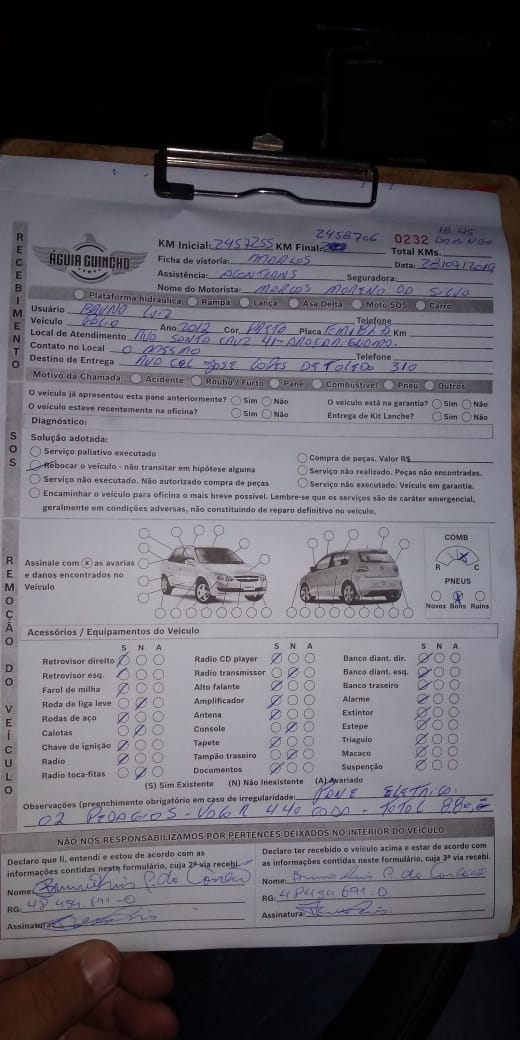 18:45
2458706 0232 DOMINGO
ÁGUIA GUINCHO
KM Inicial: 2457255 KM Final: Total KMs.
Ficha de vistoria: MARCOS Data: 28/07/2019
Assistência: Seguradora:
Nome do Motorista: MARCOS MORENO DA SILVA
RECEBIMENTO
Plataforma hidráulica Rampa Lança Asa Delta Moto SOS Carro
Usuário BRUNO LUIZ Telefone
Veículo Ano 2012 Cor PRETO Placa Km
Local de Atendimento AVD SANTA CRUZ 41
Contato no Local O MESMO Telefone
Destino de Entrega AVD CEL JOSE LOPES DE TOLEDO 310
Motivo da Chamada: Acidente Roubo / Furto Pane Combustível Pneu Outros
SOS
O veículo já apresentou esta pane anteriormente? Sim Não O veículo está na garantia? Sim Não
O veículo esteve recentemente na oficina? Sim Não Entrega de Kit Lanche? Sim Não
Diagnóstico:
Solução adotada:
Serviço paliativo executado Compra de peças. Valor R$
Rebocar o veículo - não transitar em hipótese alguma Serviço não realizado. Peças não encontradas.
Serviço não executado. Não autorizado compra de peças Serviço não executado. Veículo em garantia.
Encaminhar o veículo para oficina o mais breve possível. Lembre-se que os serviços são de caráter emergencial,
geralmente em condições adversas, não constituindo de reparo definitivo no veículo.
REMOÇÃO DO VEÍCULO
Assinale com x as avarias
e danos encontrados no
Veículo
COMB
R C
PNEUS
Novos Bons Ruins
Acessórios / Equipamentos do Veículo
S N A S N A S N A
Retrovisor direito Radio CD player Banco diant. dir.
Retrovisor esq. Radio transmissor Banco diant. esq.
Farol de milha Alto falante Banco traseiro
Roda de liga leve Amplificador Alarme
Rodas de aço Antena Extintor
Calotas Console Estepe
Chave de ignição Tapete Triagulo
Radio Tampão traseiro Macaco
Radio toca-fitas Documentos Suspenção
(S) Sim Existente (N) Não Inexistente (A) Avariado
Observações (preenchimento obrigatório em caso de irregularidade: PANE ELETRICA
02 PEDAGIOS - VALOR 4.40 CADA - TOTAL 8.80
NÃO NOS RESPONSABILIZAMOS POR PERTENCES DEIXADOS NO INTERIOR DO VEÍCULO
Declaro que li, entendi e estou de acordo com as
informações contidas neste formulário, cuja 2ª via recebi.
Nome: Bruno Luis P. da Conceicao
RG: 48.494.691-0
Assinatura:
Declaro ter recebido o veículo acima e estar de acordo com
as informações contidas neste formulário, cuja 3ª via recebi.
Nome: Bruno Luis P. da Conceicao
RG: 48494691.0
Assinatura: